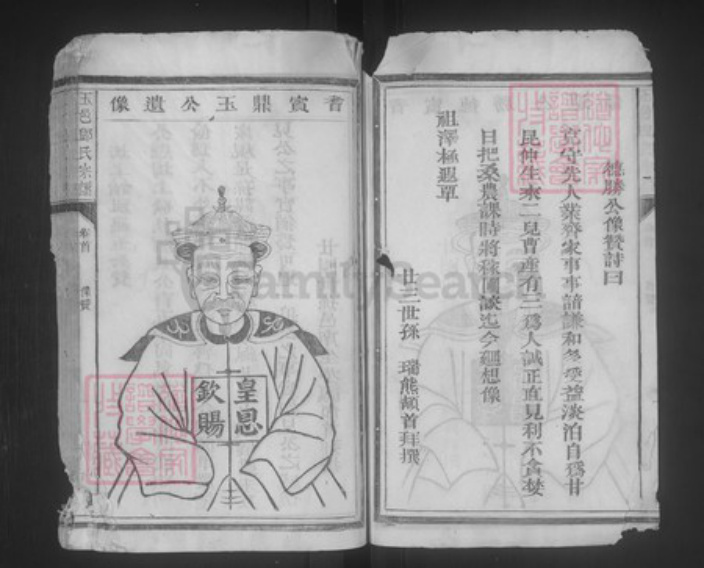 德勝公像贊詩曰
克守先人業齊家事事諳謙和多受益淡泊自爲甘
昆仲生來二兒曹產有三爲人誠正直見利不貪婪
日把桑農課時將稼圃談迄今細想像
祖澤極遐覃
廿三世孫 瑞熊顿首拜撰
耆賓鼎玉公遺像
皇恩
欽賜
玉邑鄒氏宗譜
卷首
像贊
FamilySearch